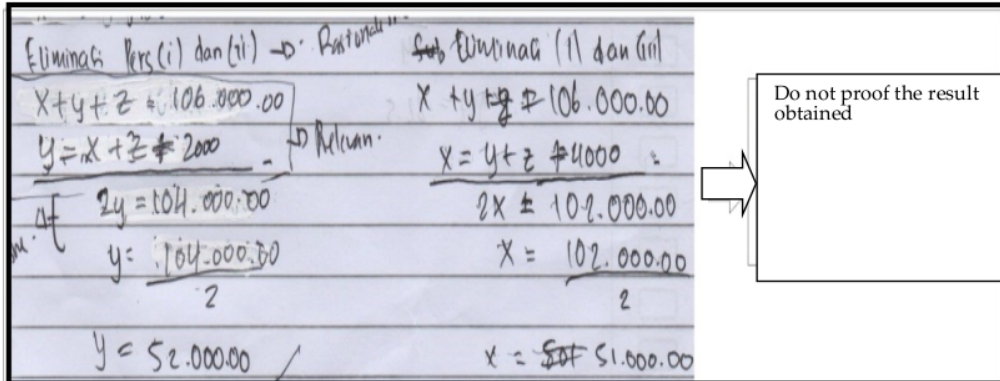 Eliminasi Pers (i) dan (ii) → Rasional
x + y + z = 106.000.00
y = x + z ≠ 2000 -
→ Relevan.
2y = 104.000.00
y = 104.000.00
2
y = 52.000.00
Eliminasi (1) dan (iii)
x + y + z = 106.000.00
x = y + z ≠ 4000 -
2x = 102.000.00
x = 102.000.00
2
x = 51.000.00
Do not proof the result
obtained